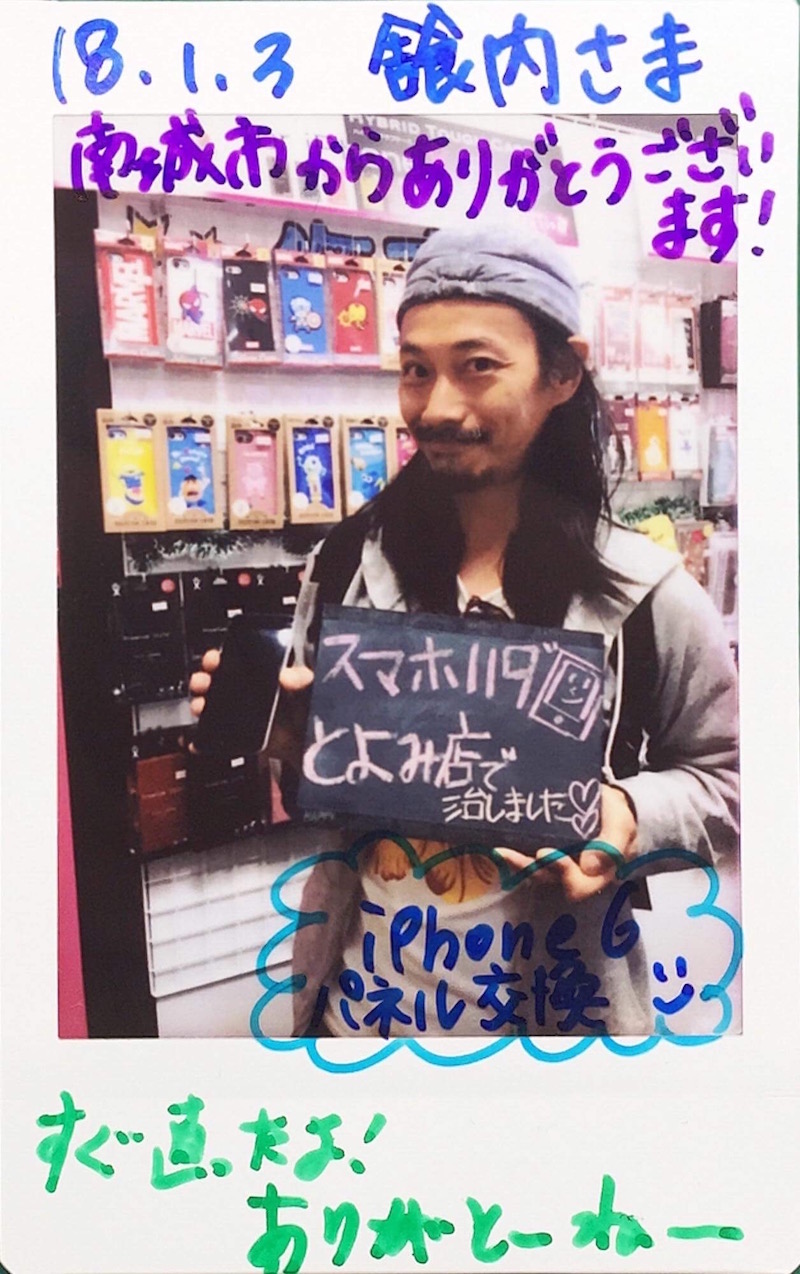 18.1.3 舘内さま
南城市からありがとうござい
ます!
HYBRID TOUGH CASE
MARVEL
MARVEL
スマホ119
とよみ店で
治しました
iPhone 6
パネル交換
すぐ直ったよ!
ありがとーねー